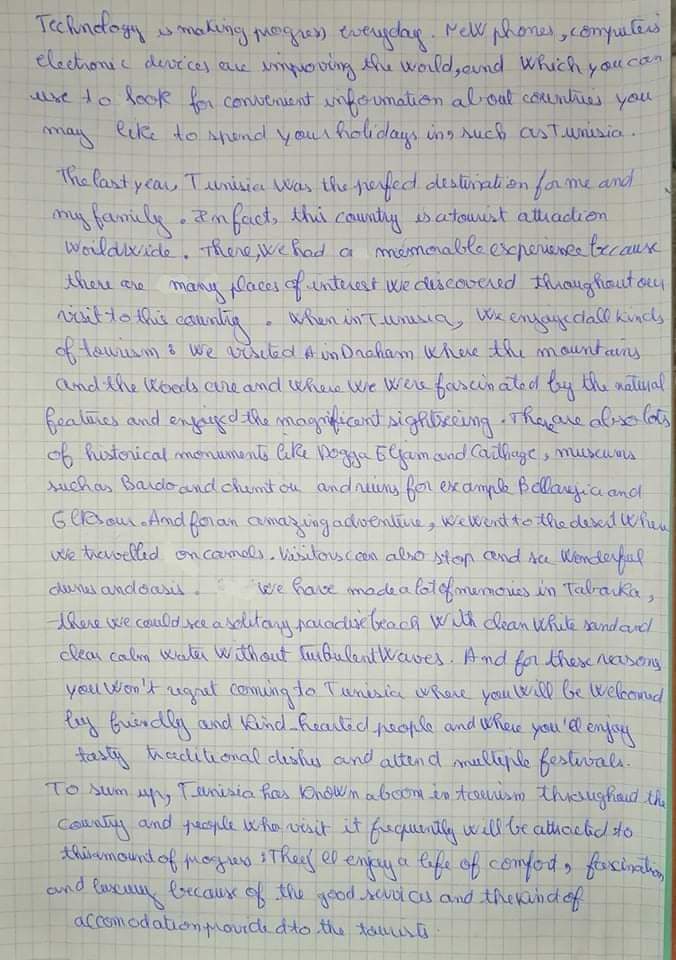 Technology is making progress everyday. New phones, computers
electronic devices are improving the world, and which you can
use to look for convenient information about countries you
may like to spend your holidays in, such as Tunisia.
The last year, Tunisia was the perfect destination for me and
my family. In fact, this country is a tourist attraction
worldwide. There, we had a memorable experience because
there are many places of interest we discovered throughout our
visit to this country. When in Tunisia, we engaged all kinds
of tourism : we visited Ain Draham where the mountains
and the woods are and where we were fascinated by the natural
features and enjoyed the magnificent sightseeing. There are also lots
of historical monuments like Dogga Eljam and Carthage, museums
such as Bardo and chemtou and ruins for example Bellarejia and
And for an amazing adventure, we went to the desert when
we travelled on camels. Visitors can also stop and see wonderful
dunes and oasis. We have made a lot of memories in Tabarka,
there we could see a solitary paradise beach with clean white sand and
clear calm water without turbulent waves. And for these reasons
you won't regret coming to Tunisia where you will be welcomed
by friendly and kind-hearted people and where you'll enjoy
tasty traditional dishes and attend multiple festivals.
To sum up, Tunisia has known a boom in tourism throughout the
country and people who visit it frequently will be attracted to
this amount of progress : They'll enjoy a life of comfort, fascination
and luxury because of the good services and the kind of
accomodation provided to the tourists.